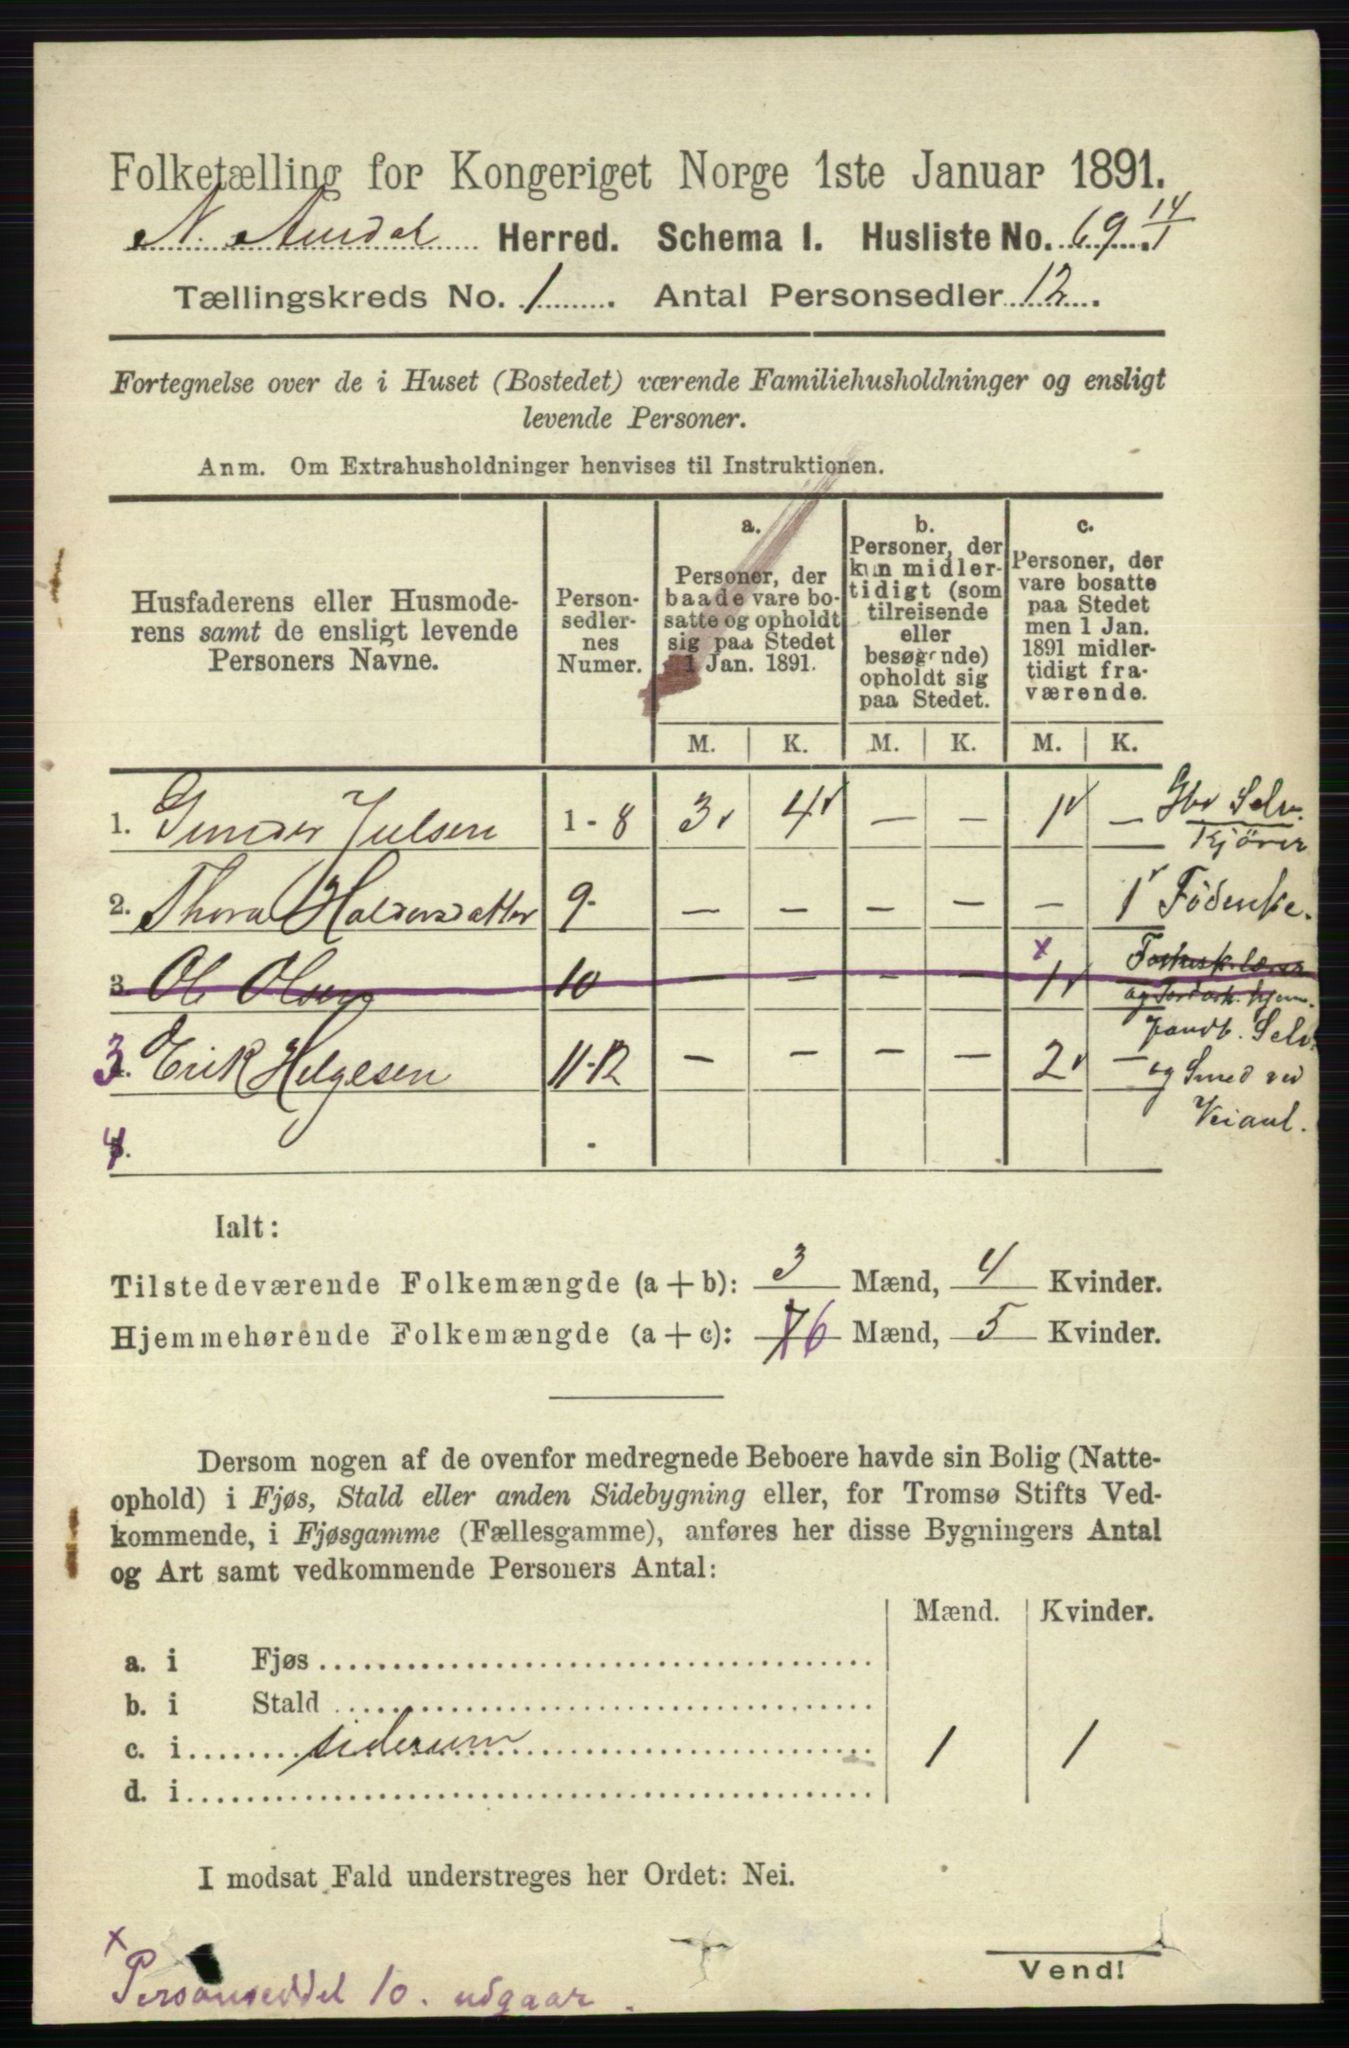 Folketælling for Kongeriget Norge 1ste Januar 1891.
N. Aurdal Herred. Schema I. Husliste No. 69 14/1
Tællingskreds No. 1. Antal Personsedler 12.
Fortegnelse over de i Huset (Bostedet) værende Familiehusholdninger og ensligt
levende Personer.
Anm. Om Extrahusholdninger henvises til Instruktionen.
Husfaderens eller Husmode-
rens samt de ensligt levende
Personers Navne.
Person-
sedler-
nes
Numer.
a.
Personer, der
baade vare bo-
satte og opholdt
sig paa Stedet
1 Jan. 1891.
b.
Personer, der
kun midler-
tidigt (som
tilreisende
eller
besøgende)
opholdt sig
paa Stedet.
c.
Personer, der
vare bosatte
paa Stedet
men 1 Jan.
1891 midler-
tidigt fra-
værende.
M. K. M. K. M. K.
1. Gunder Julsen 1 - 8 3 4 — — 1 — Gbr Selv.
Kjörer
2. Thora Haldorsdatter 9- — — — — — 1 Födenke.
x
3. Ole Olsen 10 — — — — 1
3 4. Erik Helgesen 11-12 — — — — 2 — Jordb. Selv.
og Smed ved
Veianl.
4 5. -
Ialt:
Tilstedeværende Folkemængde (a + b): 3 Mænd, 4 Kvinder.
Hjemmehørende Folkemængde (a + c): 7 6 Mænd, 5 Kvinder.
Dersom nogen af de ovenfor medregnede Beboere havde sin Bolig (Natte-
ophold) i Fjøs, Stald eller anden Sidebygning eller, for Tromsø Stifts Ved-
kommende, i Fjøsgamme (Fællesgamme), anføres her disse Bygningers Antal
og Art samt vedkommende Personers Antal:
Mænd. Kvinder.
a. i Fjøs
b. i Stald
c. i siderum 1 1
d. i
I modsat Fald understreges her Ordet: Nei.
Vend!
x
Personseddel 10. udgaar.